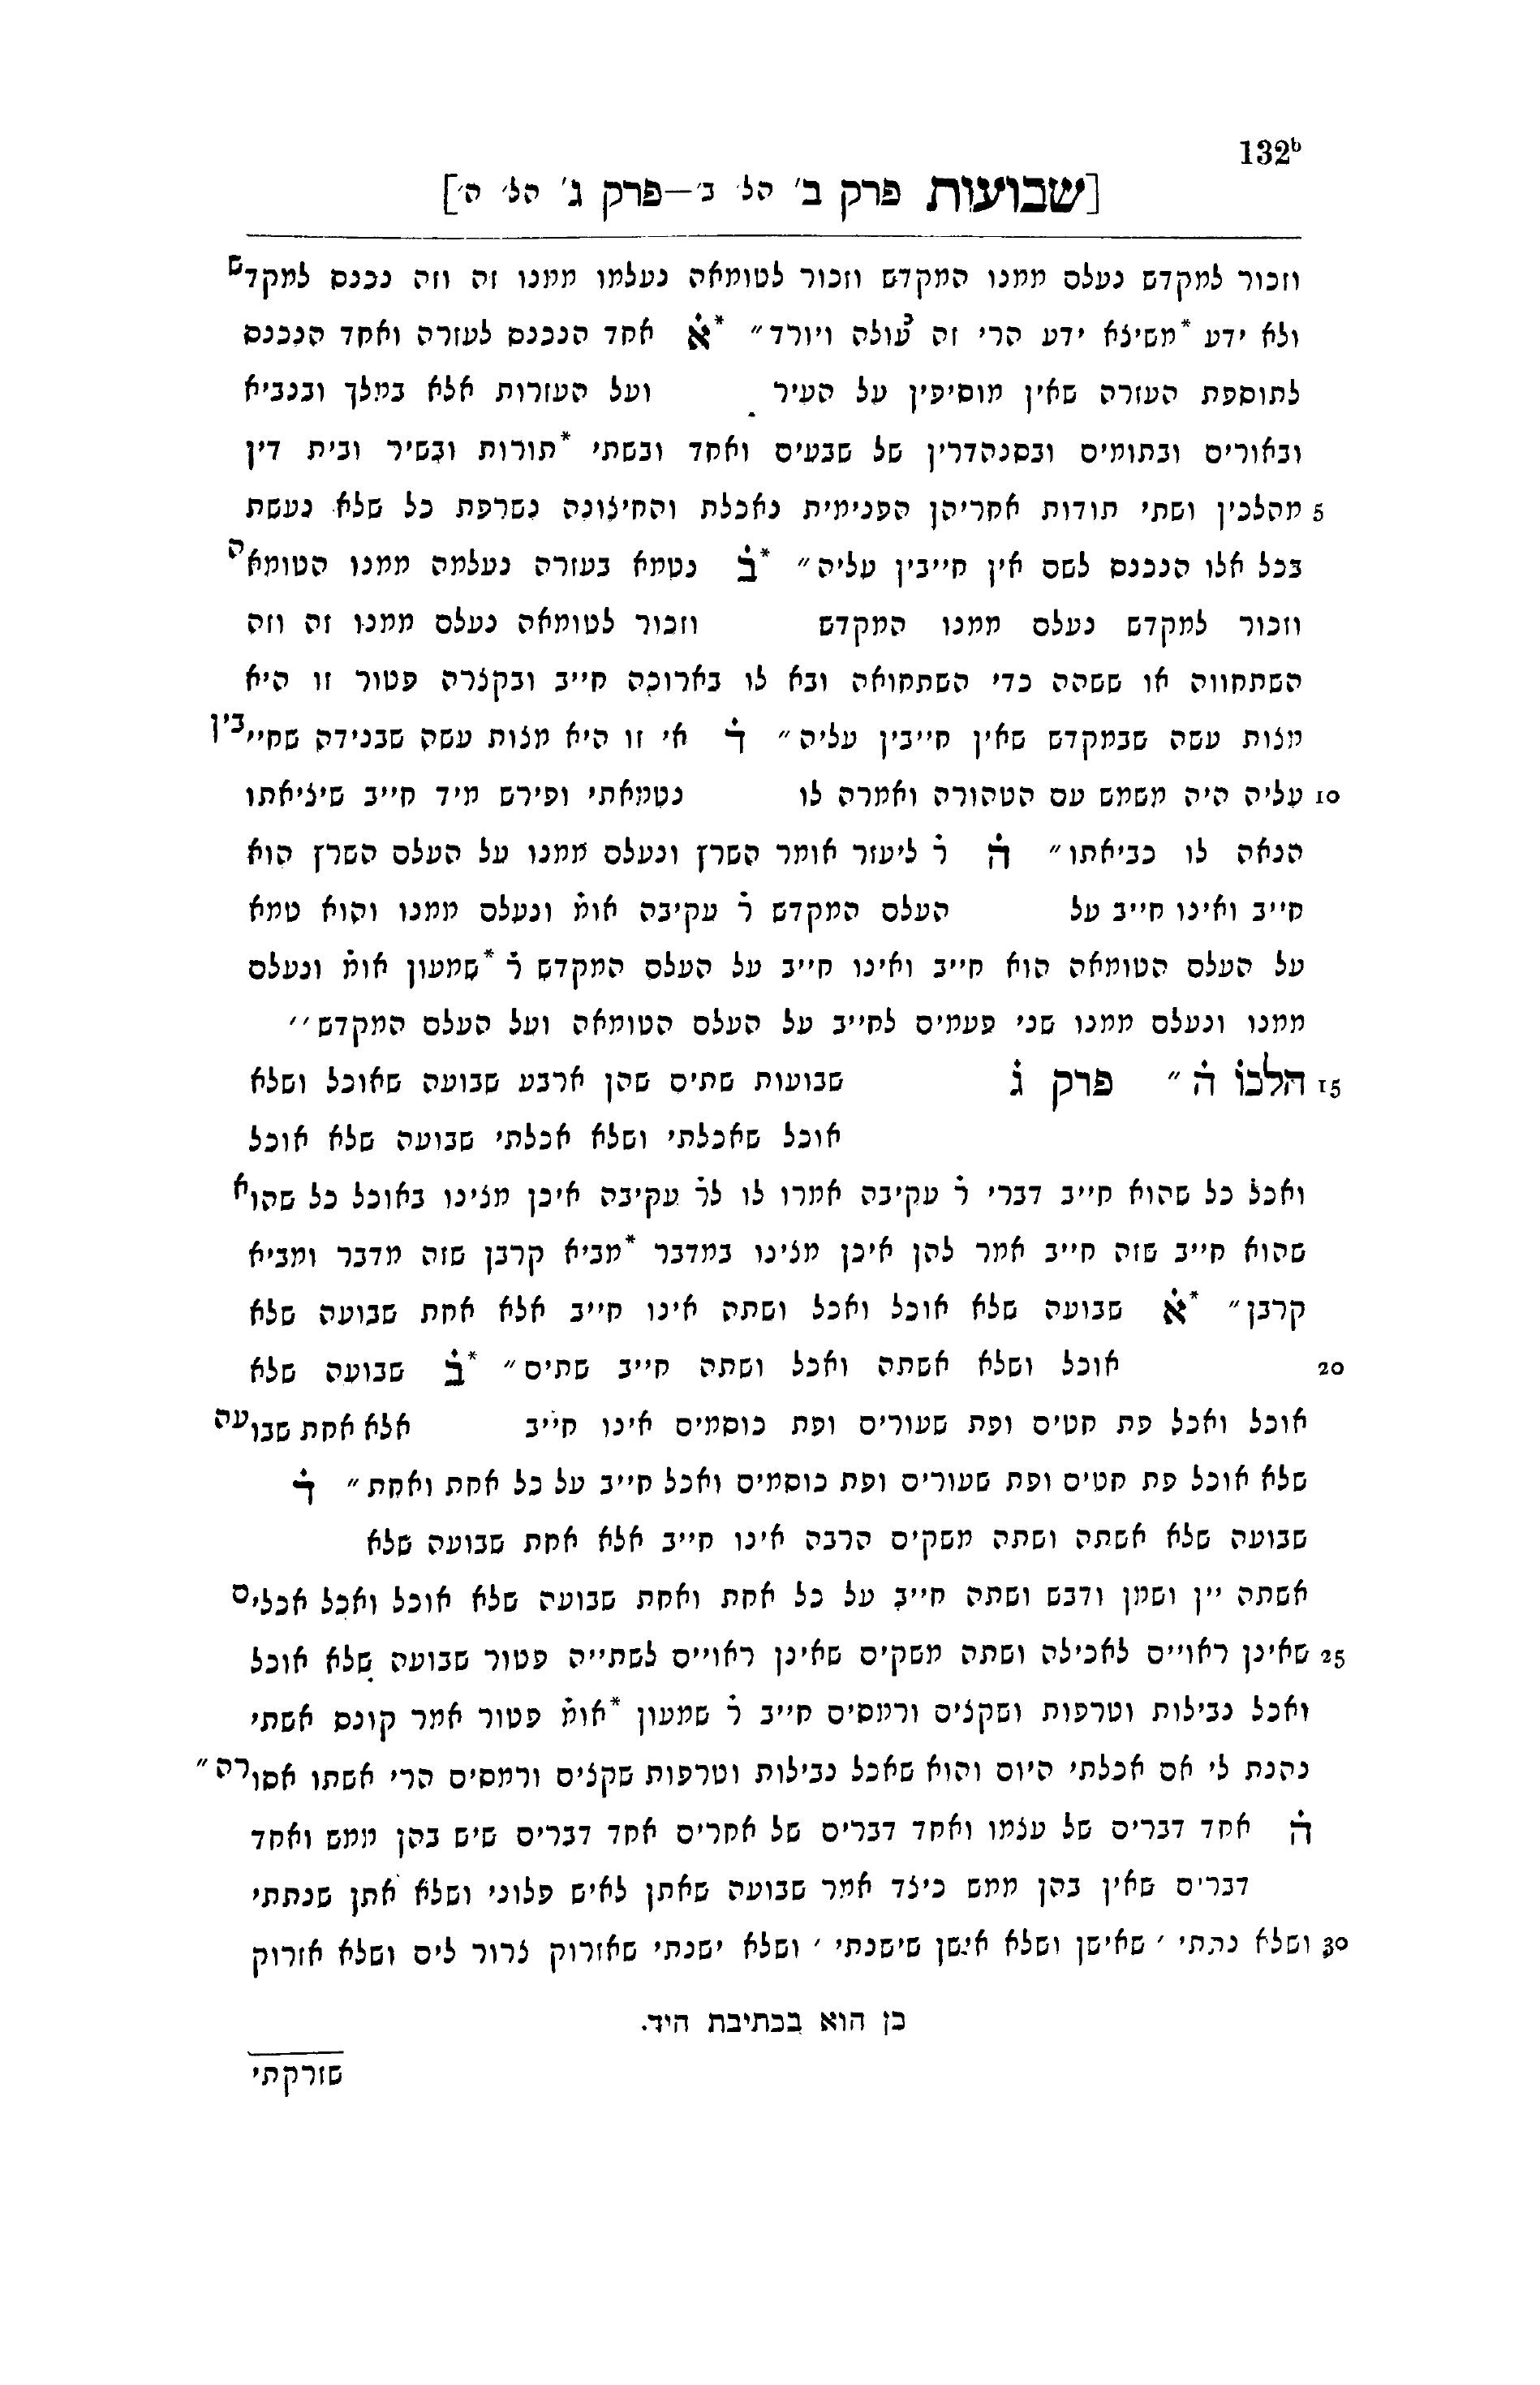 132ᵇ
[שבועות פרק ב' הל' ב'—פרק ג' הל' ה']
וזכור למקדש נעלם ממנו המקדש וזכור לטומאה נעלמו ממנו זה וזה נכנס למקדש
ולא ידע *משיצא ידע הרי זה עולה ויורד״ *א אחד הנכנס לעזרה ואחד הנכנס
לתוספת העזרה שאין מוסיפין על העיר ועל העזרות אלא במלך ובנביא
ובאורים ובתומים ובסנהדרין של שבעים ואחד ובשתי *תורות ובשיר ובית דין
5 מהלכין ושתי תודות אחריהן הפנימית נאכלת והחיצונה נשרפת כל שלא נעשת
בכל אלו הנכנס לשם אין חייבין עליה״ *ב נטמא בעזרה נעלמה ממנו הטומאה
וזכור למקדש נעלם ממנו המקדש וזכור לטומאה נעלם ממנו זה וזה
השתחווה או ששהה כדי השתחואה ובא לו בארוכה חייב ובקצרה פטור זו היא
מצות עשה שבמקדש שאין חייבין עליה״ ד אי זו היא מצות עשה שבנידה שחייבין
10 עליה היה משמש עם הטהורה ואמרה לו נטמאתי ופירש מיד חייב שיציאתו
הנאה לו כביאתו״ ה ר ליעזר אומר השרץ ונעלם ממנו על העלם השרץ הוא
חייב ואינו חייב על העלם המקדש ר עקיבה אומ ונעלם ממנו והוא טמא
על העלם הטומאה הוא חייב ואינו חייב על העלם המקדש ר *שמעון אומ ונעלם
ממנו ונעלם ממנו שני פעמים לחייב על העלם הטומאה ועל העלם המקדש׳׳
15 הלכו ה״ פרק ג שבועות שתים שהן ארבע שבועה שאוכל ושלא
אוכל שאכלתי ושלא אכלתי שבועה שלא אוכל
ואכל כל שהוא חייב דברי ר עקיבה אמרו לו לר עקיבה איכן מצינו באוכל כל שהוא
שהוא חייב שזה חייב אמר להן איכן מצינו במדבר *מביא קרבן שזה מדבר ומביא
קרבן״ *א שבועה שלא אוכל ואכל ושתה אינו חייב אלא אחת שבועה שלא
20 אוכל ושלא אשתה ואכל ושתה חייב שתים״ *ב שבועה שלא
אוכל ואכל פת חטים ופת שעורים ופת כוסמים אינו חייב אלא אחת שבועה
שלא אוכל פת חטים ופת שעורים ופת כוסמים ואכל חייב על כל אחת ואחת״ ד
שבועה שלא אשתה ושתה משקים הרבה אינו חייב אלא אחת שבועה שלא
אשתה יין ושמן ודבש ושתה חייב על כל אחת ואחת שבועה שלא אוכל ואכל אכלים
25 שאינן ראויים לאכילה ושתה משקים שאינן ראויים לשתייה פטור שבועה שלא אוכל
ואכל נבילות וטרפות ושקצים ורמסים חייב ר שמעון *אומ פטור אמר קונס אשתי
נהנת לי אם אכלתי היום והוא שאכל נבילות וטרפות שקצים ורמסים הרי אשתו אסורה״
ה אחד דברים של עצמו ואחד דברים של אחרים אחד דברים שיש בהן ממש ואחד
דברים שאין בהן ממש כיצד אמר שבועה שאתן לאיש פלוני ושלא אתן שנתתי
30 ושלא נתתי ׳ שאישן ושלא אישן שישנתי ׳ ושלא ישנתי שאזרוק צרור לים ושלא אזרוק
כן הוא בכתיבת היד.
שזרקתי